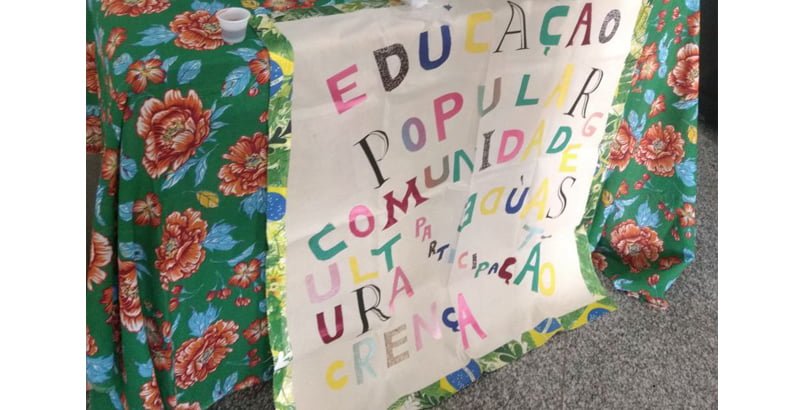 EDUCAÇAO
POPULAR
COMUNIDADE
EDÙAS
ULT
PARTICIPAÇÃO
URA
CRENÇA